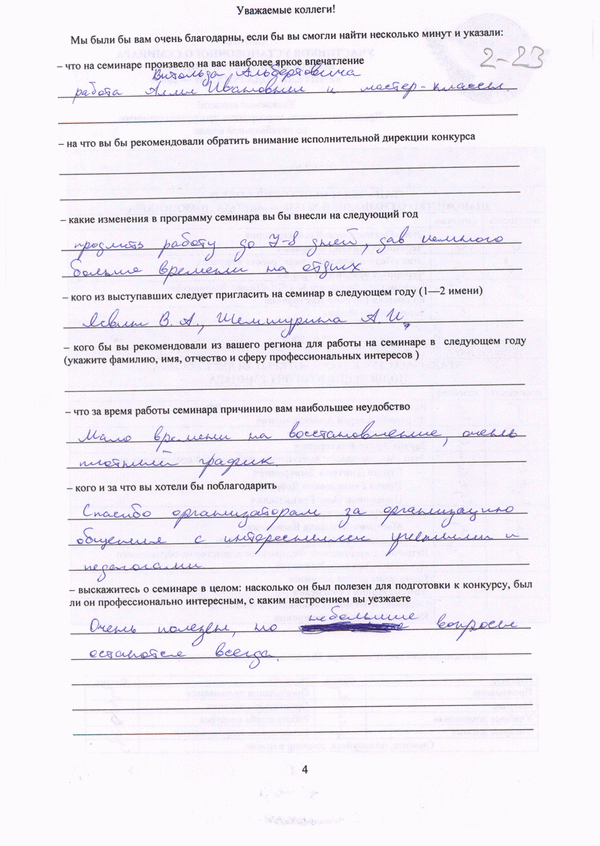 Уважаемые коллеги!
Мы были бы вам очень благодарны, если бы вы смогли найти несколько минут и указали:
2-23
– что на семинаре произвело на вас наиболее яркое впечатление
Витольда Альбертовича
работа Аллы Ивановны и мастер-классы
– на что вы бы рекомендовали обратить внимание исполнительной дирекции конкурса
– какие изменения в программу семинара вы бы внесли на следующий год
продлить работу до 7-8 дней, дав немного
больше времени на отдых
– кого из выступавших следует пригласить на семинар в следующем году (1—2 имени)
Ясвин В.А., Шемшурина А.И.
– кого бы вы рекомендовали из вашего региона для работы на семинаре в следующем году
(укажите фамилию, имя, отчество и сферу профессиональных интересов )
– что за время работы семинара причинило вам наибольшее неудобство
Мало времени на восстановление, очень
плотный график.
– кого и за что вы хотели бы поблагодарить
Спасибо организаторам за организацию
общения с интересными учеными и
педагогами
– выскажитесь о семинаре в целом: насколько он был полезен для подготовки к конкурсу, был
ли он профессионально интересным, с каким настроением вы уезжаете
небольшие
Очень полезен, но вопросы
остаются всегда.
4